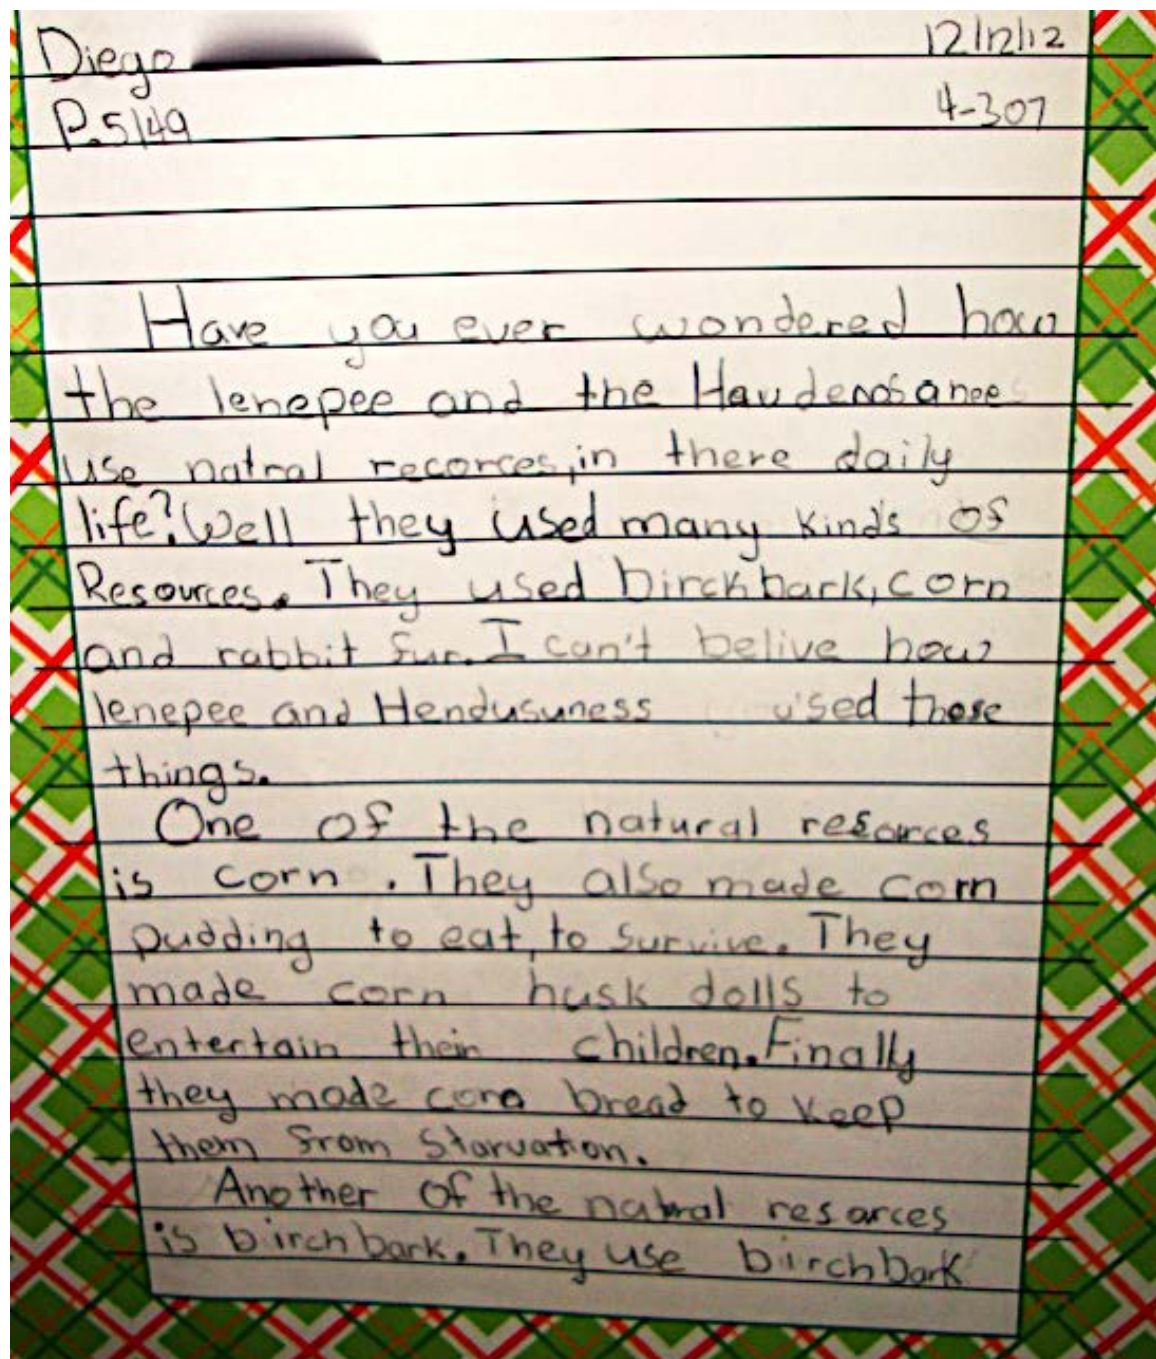 Diego
12/12/12
P.S/49
4-307
Have you ever wondered how
the lenepee and the Haudenosanee
use natral recorces,in there daily
life? Well they used many kinds of
Resources. They used birckbark, corn
and rabbit fur. I can't belive how
lenepee and Hendusuness used these
things.
One of the natural resorces
is corn. They also made corn
pudding to eat, to survive. They
made corn husk dolls to
entertain their children. Finally
they made corn bread to keep
them from starvation.
Another of the natral resarces
is birchbark. They use birchbark